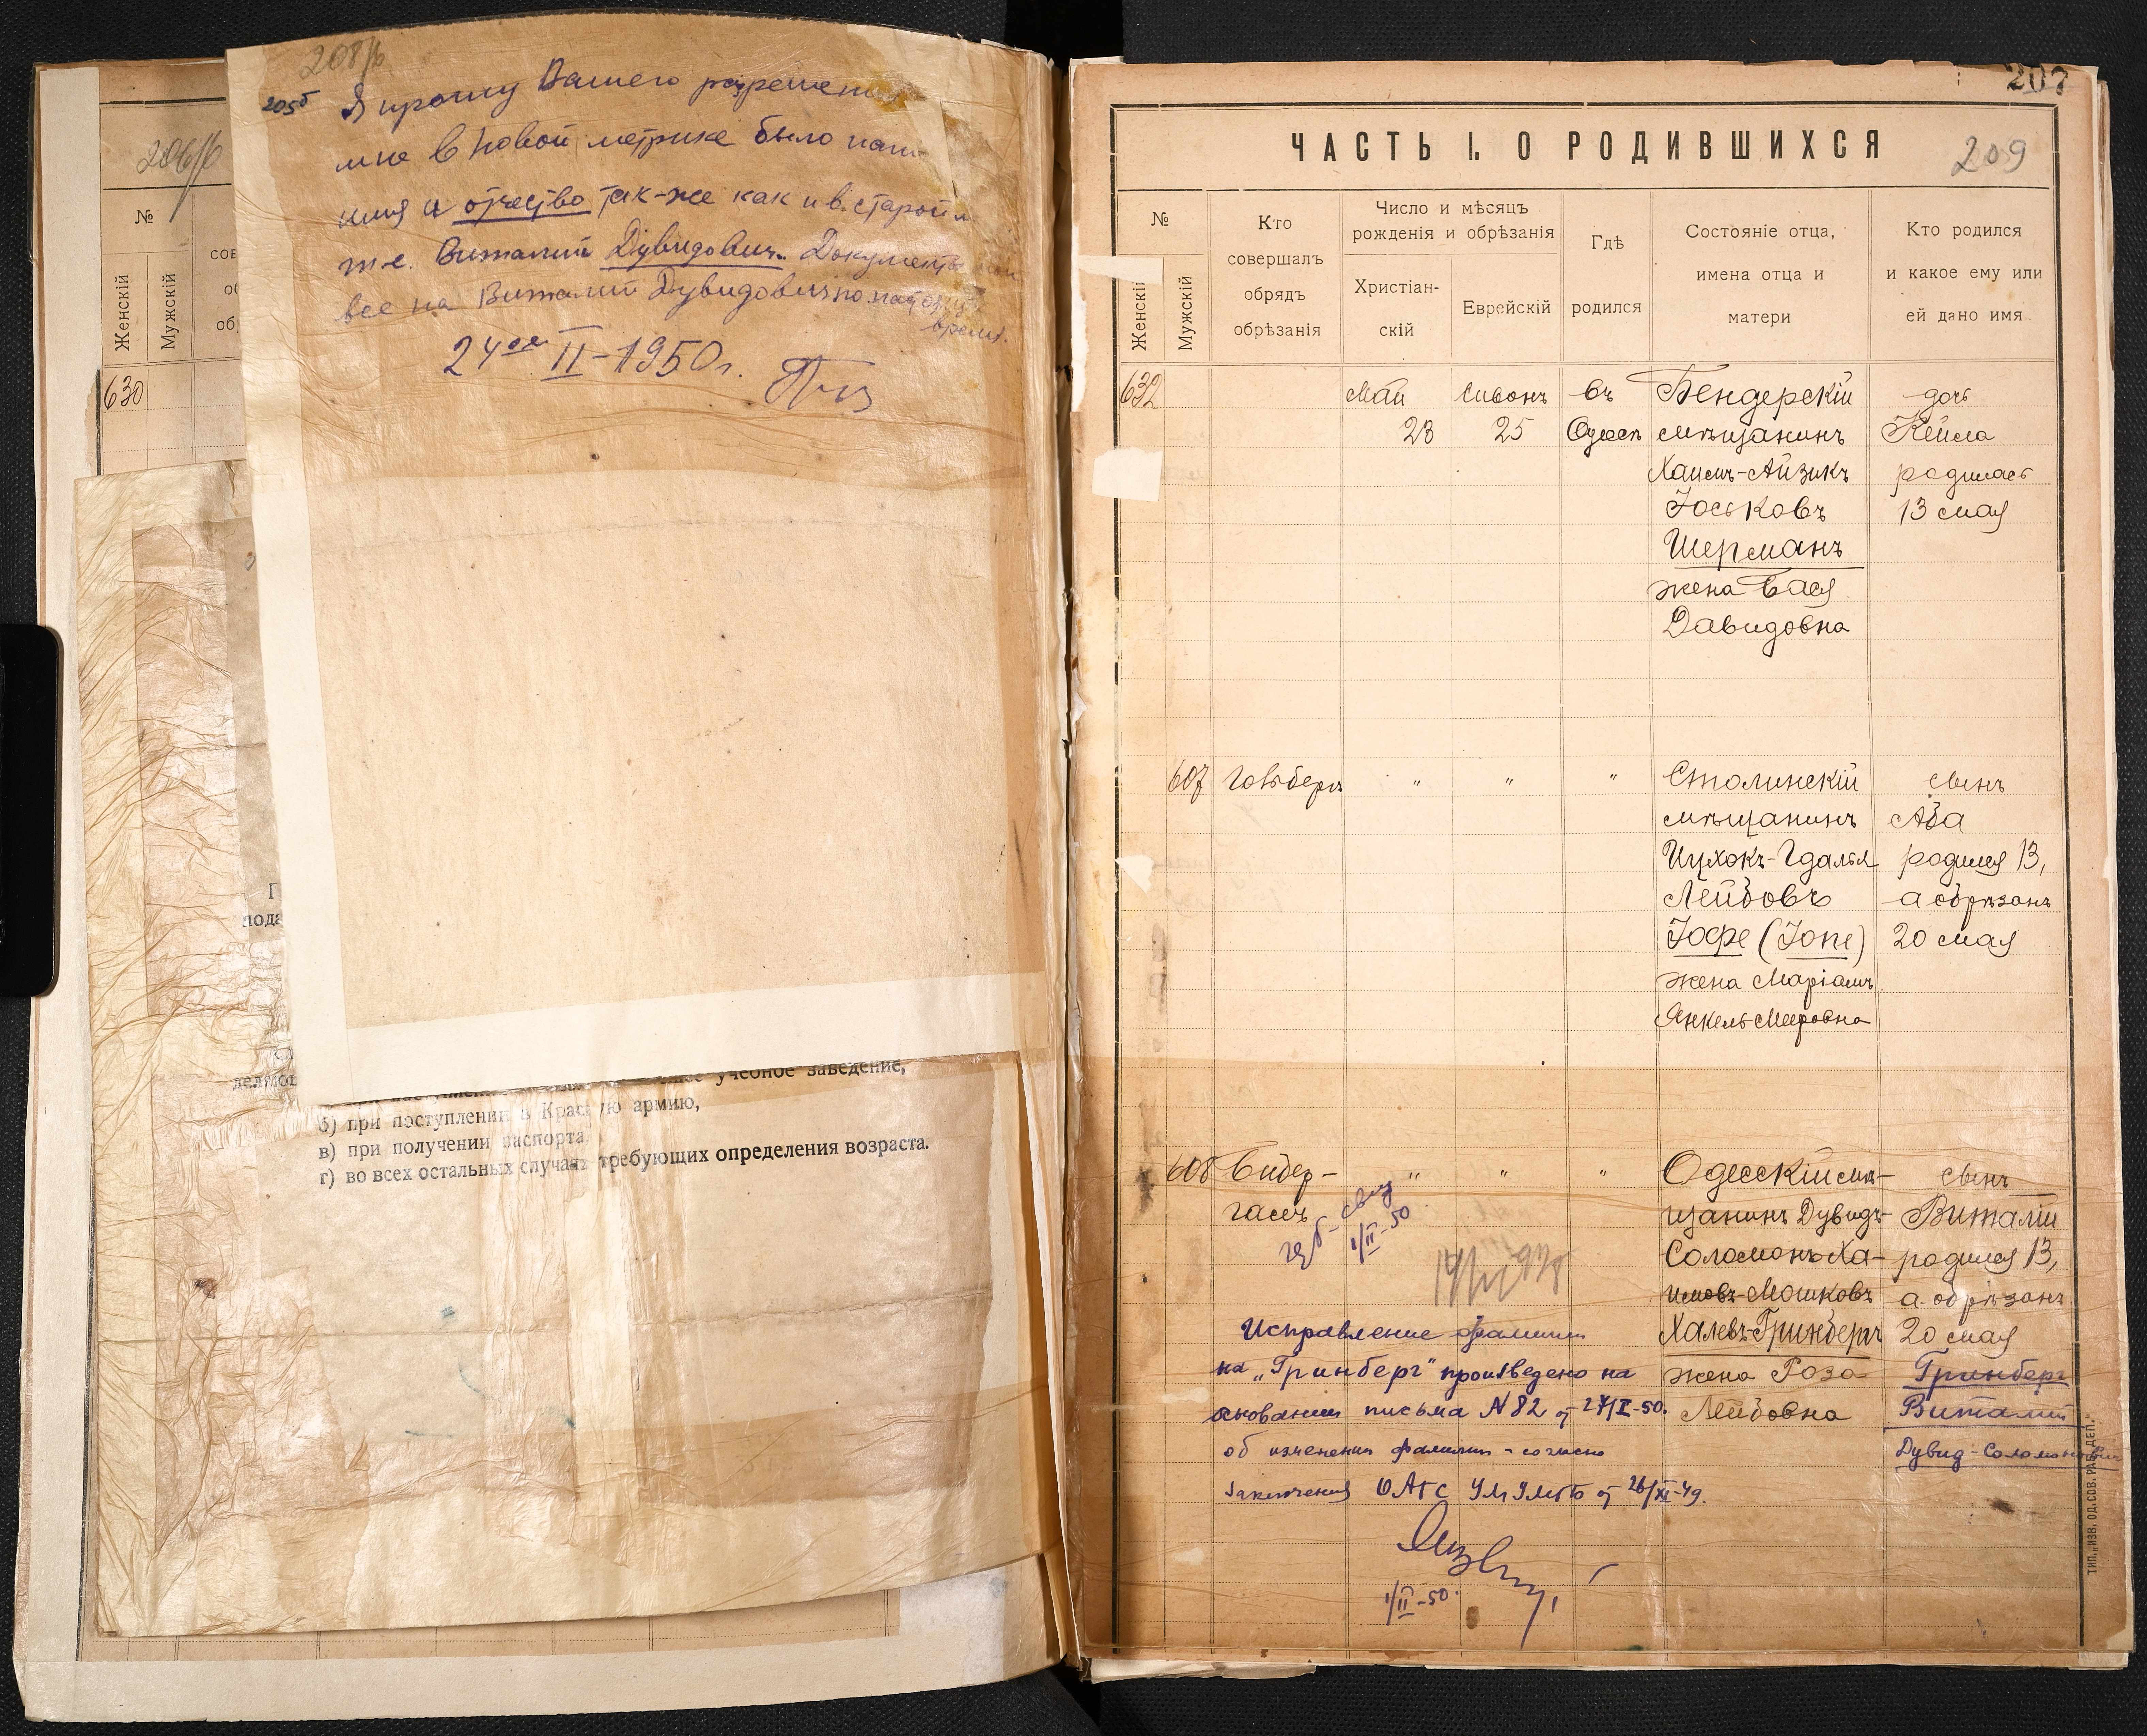 208/б
205б Я прошу Вашего разрешения
мне в новой метрике было
имя и отчество так-же как и в старой
т.е. Виталий Дувидович. Документы
все на Виталий Дувидович по наст
время.
24ое II-1950г.
206/б
№
Женскій
Мужскій
630
б) при поступлении в Красную армию,
в) при получении паспорта
г) во всех остальных случаях требующих определения возраста.
207
ЧАСТЬ I. О РОДИВШИХСЯ
209
№
Женскій
Мужскій
Кто
совершалъ
обрядъ
обрѣзанія
Число и мѣсяцъ
рожденія и обрѣзанія
Христіан-
скій
Еврейскій
Гдѣ
родился
Состояніе отца,
имена отца и
матери
Кто родился
и какое ему или
ей дано имя
632 Май Сивонъ въ Бендерскій дочь
28 25 Одессѣ мѣщанинъ Кейла
Хаимъ-Айзикъ родилась
Іоськовъ 13 мая
Шерманъ
жена Бася
Давидовна
607 " " " Столинскій сынъ
мѣщанинъ Аба
Ицхокъ-Гдалья родился 13,
Лейбовъ а обрѣзанъ
Іофе (Іопе) 20 мая
жена Маріамъ
Янкель-Мееровна
608 Бидер- " " " Одесскій мѣ- сынъ
гасъ щанинъ Дувидъ- Виталій
1/II-50
Соломонъ Ха- родился 13,
имовъ-Мошковъ а обрѣзанъ
Исправление фамилии Халевъ-Гринбергъ 20 мая
на „Гринберг" произведено на жена Роза Гринберг
основании письма N 82 от 27/I-50. Лейбовна Виталий
об изменении фамилии - согласно Дувид-Соломонович
заключения ОАГС от 26/XI-49.
1/II-50.
ТИП. „ИЗВ. ОД. СОВ. РАБ. ДЕП."